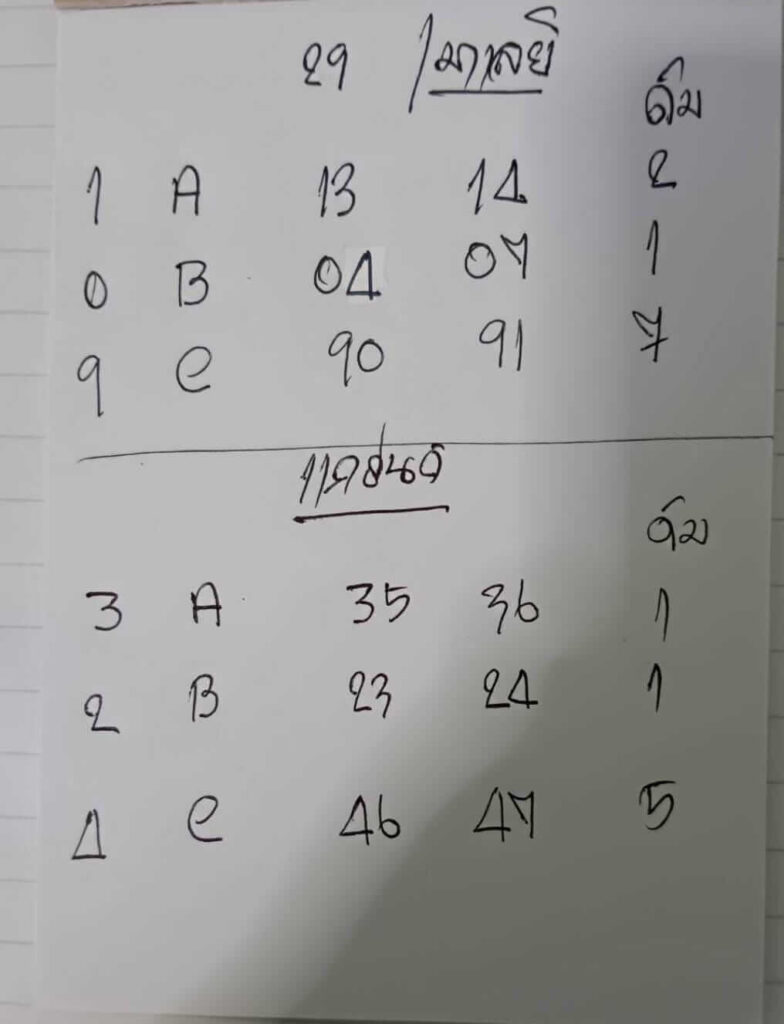 29 /มาเลย์
ดับ
1 A 13 14 2
0 B 04 07 1
9 C 90 91 7
ดับ
3 A 35 36 1
2 B 23 24 1
4 C 46 47 5